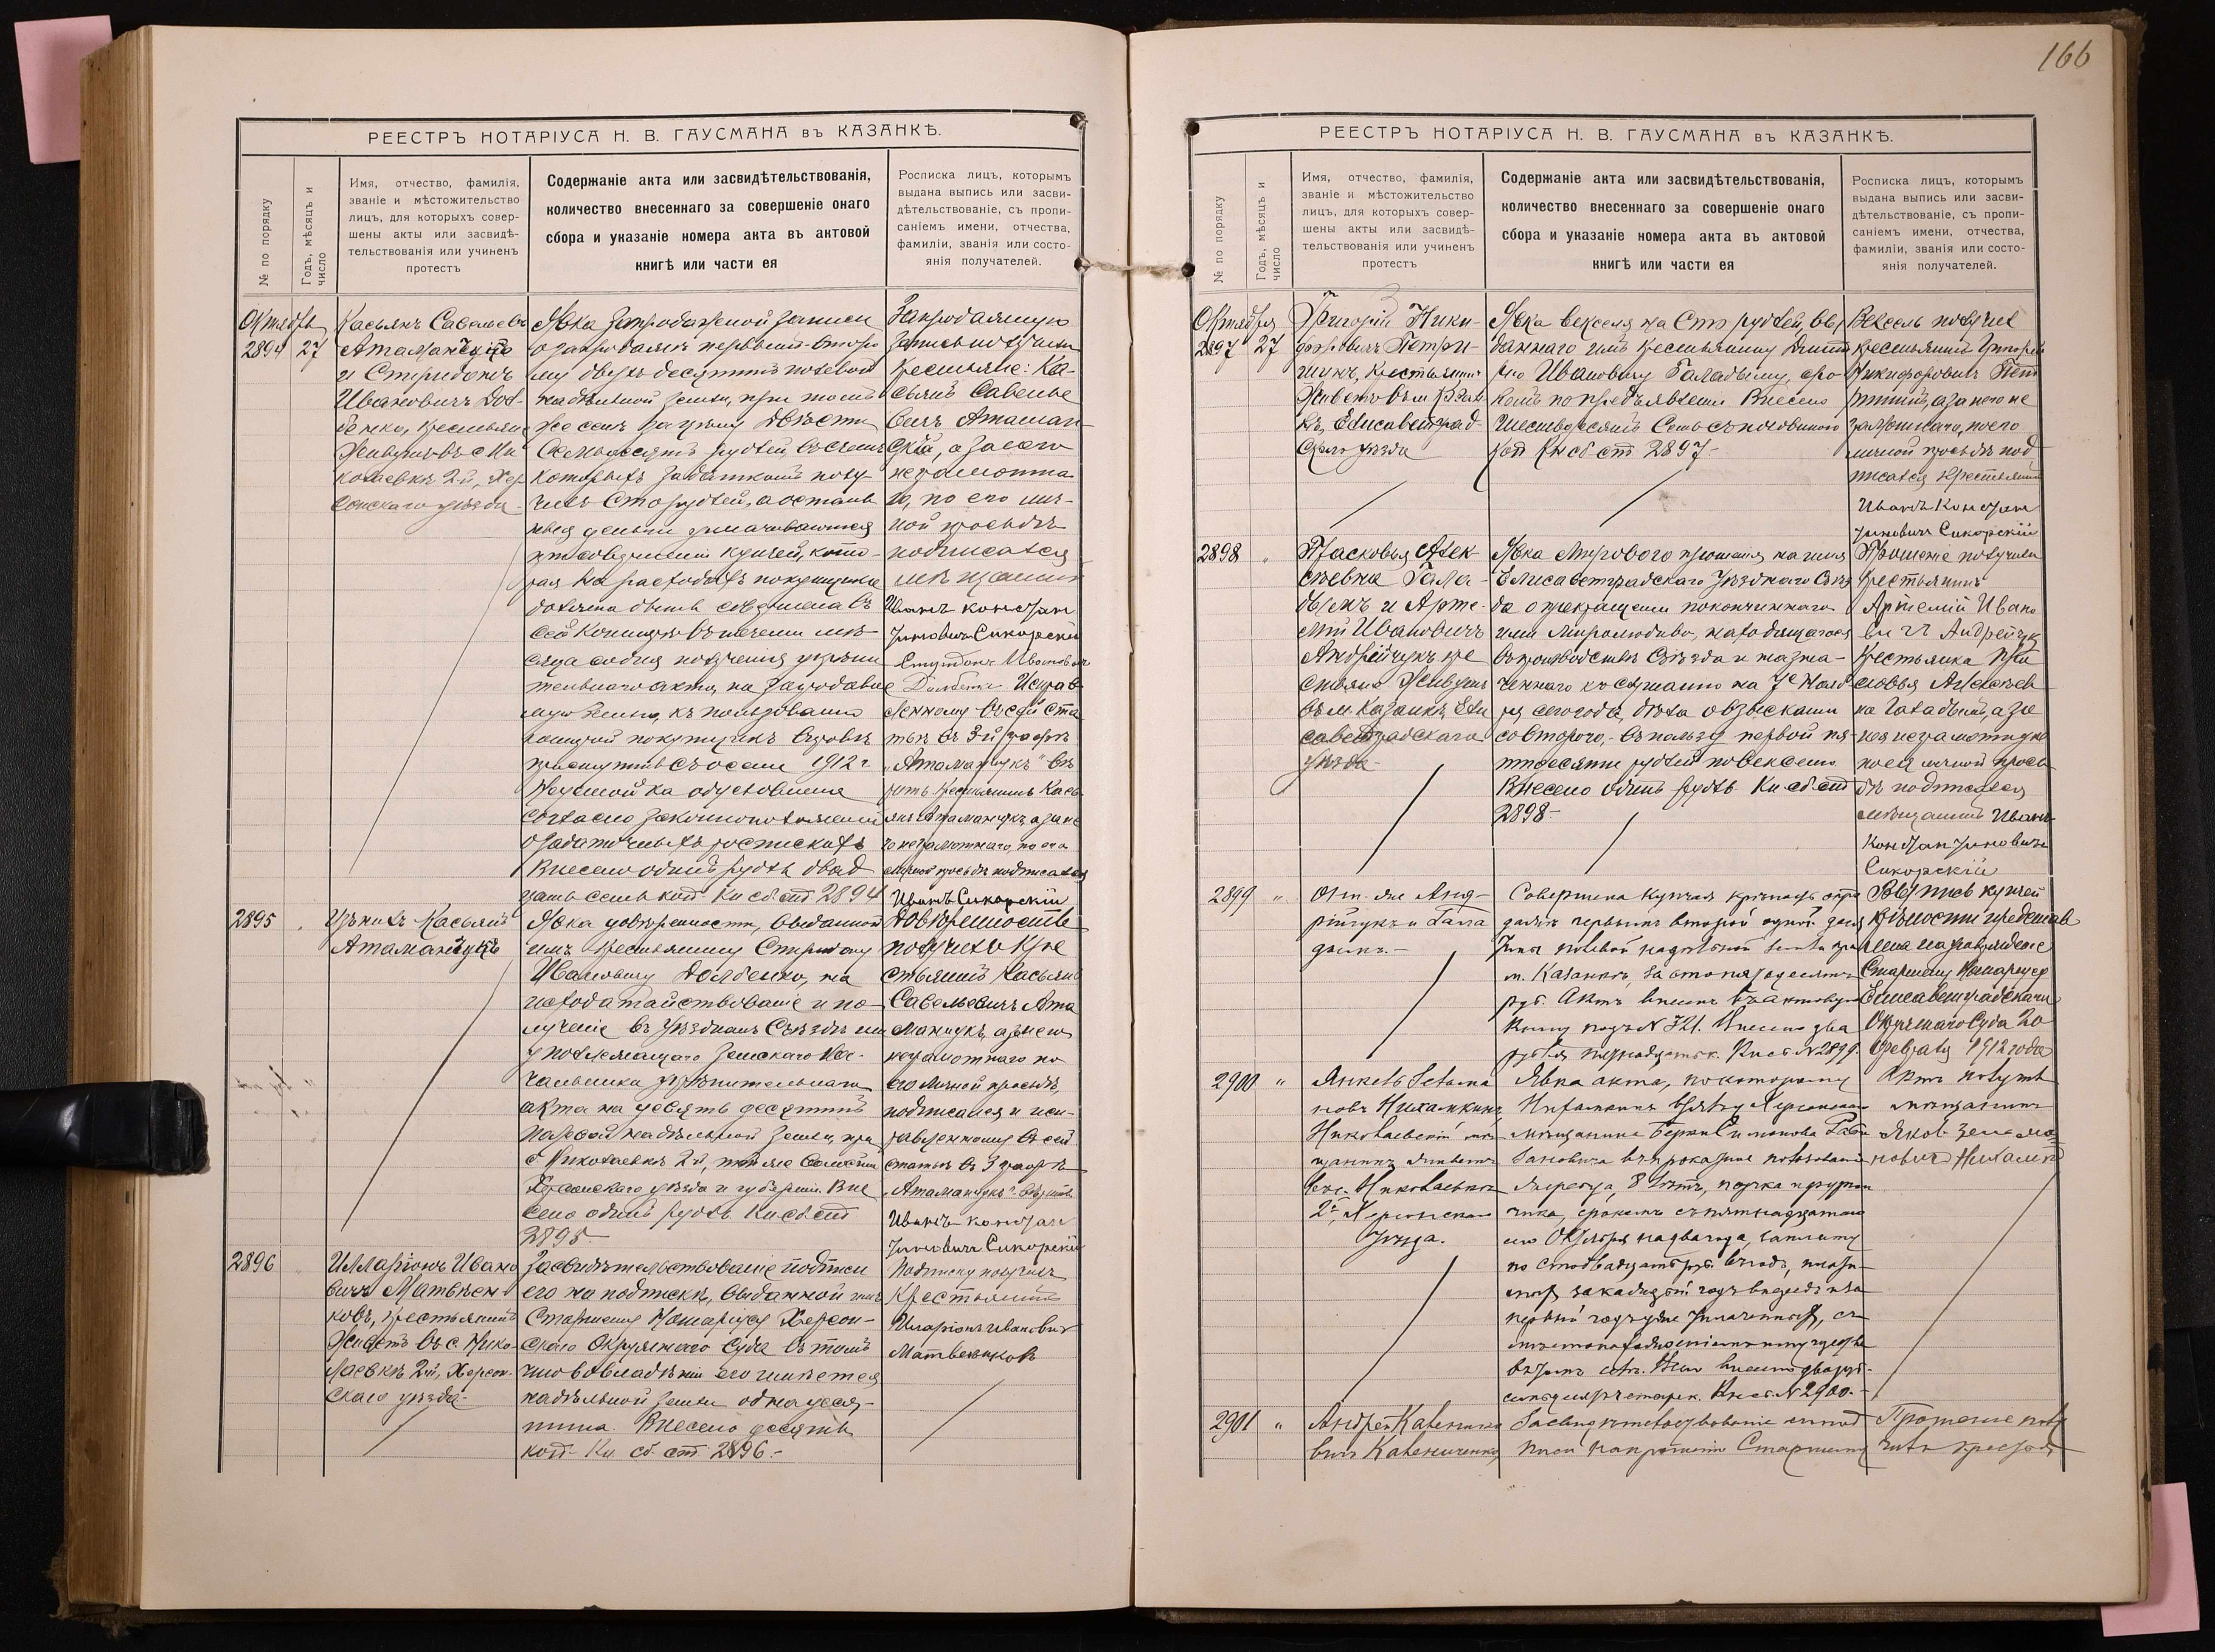 РЕЕСТРЪ НОТАРІУСА Н. В. ГАУСМАНА въ КАЗАНКѢ.
№ по порядку
Годъ, мѣсяцъ и
число
Имя, отчество, фамилія,
званіе и мѣстожительство
лицъ, для которыхъ совер-
шены акты или засвидѣ-
тельствованія или учиненъ
протестъ
Содержаніе акта или засвидѣтельствованія,
количество внесеннаго за совершеніе онаго
сбора и указаніе номера акта въ актовой
книгѣ или части ея
Росписка лицъ, которымъ
выдана выпись или засви-
дѣтельствованіе, съ пропи-
саніемъ имени, отчества,
фамиліи, званія или состо-
янія получателей.
Октябрь
2894 27
Касьянъ Савельевъ
и Спиридонъ
Ивановичъ Дол-
бенко, крестьяне
Живущ въ с Ни
колаевкѣ 2-й, Хер
сонскаго уѣзда
Явка запродажной записи
о запродажѣ первымъ второ
му двухъ десятинъ полевой
надѣльной земли, при томъ
же селѣ за цѣну двѣсти
семьдесятъ рублей, въ счетъ
которыхъ задаткомъ полу
чилъ сто рублей, а осталь
ныя деньги уплачиваются
при совершеніи купчей, кото-
рая на расходы покупщика
должна быть совершена въ
сей Конторѣ въ теченіи мѣ-
сяца со дня полученія укрѣпи
тельнаго акта, на запродавае
мую землю, къ пользованію
которой покупщикъ вправѣ
приступить съ осени 1912 г
Неустойка обусловлена
согласно законоположеній
о задаточныхъ роспискахъ
Внесено одинъ рубль двад
цать семь коп. Кн сб. ст 2894
Запродажную
запись получили
крестьяне: Ка-
сьянъ Савелье
вичъ Атаман
скій, а за него
неграмотна
го, по его лич-
ной просьбѣ
подписался
мѣщанинъ
Иванъ Констан
тиновичъ Сикорскій
Спиридонъ Ивановичъ
Долбенко Исправ
ленному въ сей ста
тьѣ въ 3-й графѣ
„Атаманчукъ" вѣ
рить. Крестьянинъ Кась
янъ Атаманчукъ а за не
го неграмотнаго, по его
личной просьбѣ подписался
Иванъ Сикорскій
2895
Касьянъ
Атаманчукъ
Явка довѣренности, выданной
имъ крестьянину Спиридону
Ивановичу Долбенко, на
исходатайствованіе и по-
лученіе въ Уѣздномъ Съѣздѣ или
у подлежащаго Земскаго На-
чальника укрѣпительнаго
акта на десять десятинъ
полевой надѣльной земли, при
с Николаевкѣ 2-й, той же волости
Херсонскаго уѣзда и губерніи. Вне
сено одинъ рубль. Кн сб. ст
2895
Довѣренность
получилъ кре
стьянинъ Касьянъ
Савельевичъ Ата
манчукъ, а за него
неграмотнаго по
его личной просьбѣ,
подписался и исп-
равленному въ сей
статьѣ въ 3 графѣ
„Атаманчукъ" вѣрить
Иванъ Констан
тиновичъ Сикорскій
2896
Илларіонъ Ивано
вичъ Матвѣен-
ковъ, крестьянинъ
Живетъ въ с. Нико
лаевкѣ 2-й, Херсон-
скаго уѣзда
Засвидѣтельствованіе подписи
его на подпискѣ, выданной имъ
Старшему Нотаріусу Херсон-
скаго Окружнаго Суда въ томъ
что во владѣніи его имѣется
надѣльной земли одна деся-
тина. Внесено десять
коп Кн сб. ст 2896.
Подписку получилъ
Крестьянинъ
Иларіонъ Ивановичъ
Матвѣенковъ
166
РЕЕСТРЪ НОТАРІУСА Н. В. ГАУСМАНА въ КАЗАНКѢ.
№ по порядку
Годъ, мѣсяцъ и
число
Имя, отчество, фамилія,
званіе и мѣстожительство
лицъ, для которыхъ совер-
шены акты или засвидѣ-
тельствованія или учиненъ
протестъ
Содержаніе акта или засвидѣтельствованія,
количество внесеннаго за совершеніе онаго
сбора и указаніе номера акта въ актовой
книгѣ или части ея
Росписка лицъ, которымъ
выдана выпись или засви-
дѣтельствованіе, съ пропи-
саніемъ имени, отчества,
фамиліи, званія или состо-
янія получателей.
Октября
2897 27
Григорій Ники-
форовичъ Петри-
шинъ, крестьянинъ
Живетъ въ м Казан
кѣ, Елисаветград-
скаго уѣзда
Явка векселя на Сто рублей, вы
даннаго имъ крестьянину
Ивановичу Галадыму, сро-
комъ по предъявленіи Внесено
шестьдесятъ семь съ половиною
коп Кн сб ст 2897-
Вексель получилъ
крестьянинъ Григорій
Никифоровичъ Пет
ришинъ, а за него не
грамотнаго, по его
личной просьбѣ под
писался крестьянинъ
Иванъ Констан
тиновичъ Сикорскій
2898
Прасковья Алек-
сѣевна Гала-
дымъ и Арте-
мій Ивановичъ
Андрійчукъ кре
стьяне Живущіе
въ м Казанкѣ, Ели
саветградскаго
уѣзда-
Явка мирового прошенія на имя
Елисаветградскаго Уѣзднаго Съѣз
да о прекращеніи поконченнаго
ими миролюбиво, находящагося
въ производствѣ Съѣзда и назна-
ченнаго къ слушанію на 7е Нояб
ря сего года, дѣла о взысканіи
со второго, въ пользу первой пя-
тидесяти рублей по векселю
Внесено одинъ рубль. Кн сб. ст
2898-
Прошеніе получили
Крестьянинъ
Артемій Ивано
вичъ Андрейчук
крестьянка Пра
сковья Алексѣев
на Галадымъ, а за
нея неграмотную
по ея личной прось
бѣ подписался
мѣщанинъ Иванъ
Константиновичъ
Сикорскій
2899 "
Андрійчукъ и Гала
дымъ.-
Совершена купчая крѣпость о про
дажѣ первымъ второй одной деся
тины полевой надѣльной земли при
м. Казанкѣ, за сто пятьдесятъ
руб. Актъ внесенъ въ актовую
книгу подъ № 721. Внесено два
рубля Кн сб. № 2899.
Выпись купчей
крѣпости представ
лена на утвержденіе
Старшему Нотаріусу
Елисаветградскаго
Окружнаго Суда 20
Февраля 1912 года
2900 "
Нихамкинъ
Николаевскій мѣ
щанинъ живетъ
въ с. Николаевкѣ
2й, Херсонскаго
уѣзда.
Явка акта, по которому
Нихамкинъ взялъ у Херсонскаго
мѣщанина Берки Симонова
въ прокатное пользованіе
жеребца, 8 лѣтъ,
срокомъ съ пятнадцатаго
Октября на два года, за плату
по сто двадцать руб въ годъ,
за каждый годъ впередъ и за
первый годъ уже уплаченныхъ, съ
Кн сб № 2900.-
Актъ получилъ
мѣщанинъ
Яковъ
новичъ Нихамкинъ
2901 "
Андрей
вичъ Калениченко
Засвидѣтельствованіе его под
писи на прошеніи Старшему
Прошеніе полу
чилъ крестья